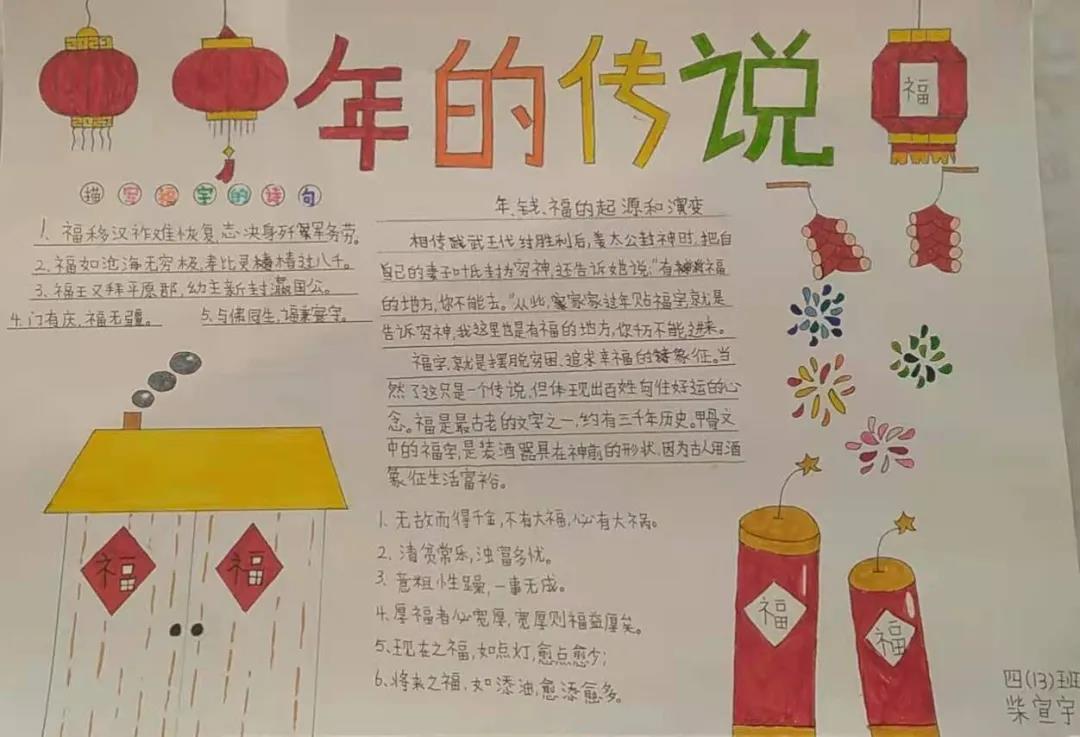 年的传说
福
描写福字的诗句
1. 福移汉祚难恢复,志决身歼军务劳。
2. 福如沧海无穷极,孝比灵椿过八千。
3. 福王又拜平原郡,幼主新封瀛国公。
4. 门有庆,福无疆。
5. 与佛同生,福寿
年、钱、福的起源和演变
相传 武王伐纣胜利后,姜太公封神时,把自
自己的妻子叶氏封为穷神,还告诉她说:"有福
的地方,你不能去。"从此,家家过年贴福字,就是
告诉穷神,我这里也是有福的地方,你千万不能进来。
福字,就是摆脱穷困、追求幸福的象征。当
然了这只是一个传说,但体现出百姓向往好运的心
念。福是最古老的文字之一,约有三千年历史。甲骨文
中的福字,是装酒器具在神前的形状,因为古人用酒
象征生活富裕。
1. 无故而得千金,不有大福,必有大祸。
2. 清贫常乐,浊富多忧。
3. 意粗性躁,一事无成。
4. 厚福者必宽厚,宽厚则福益厚矣。
5. 现在之福,如点灯,愈点愈少;
6. 将来之福,如添油,愈添愈多。
福
福
福
福
四(13)班
柴宣宇